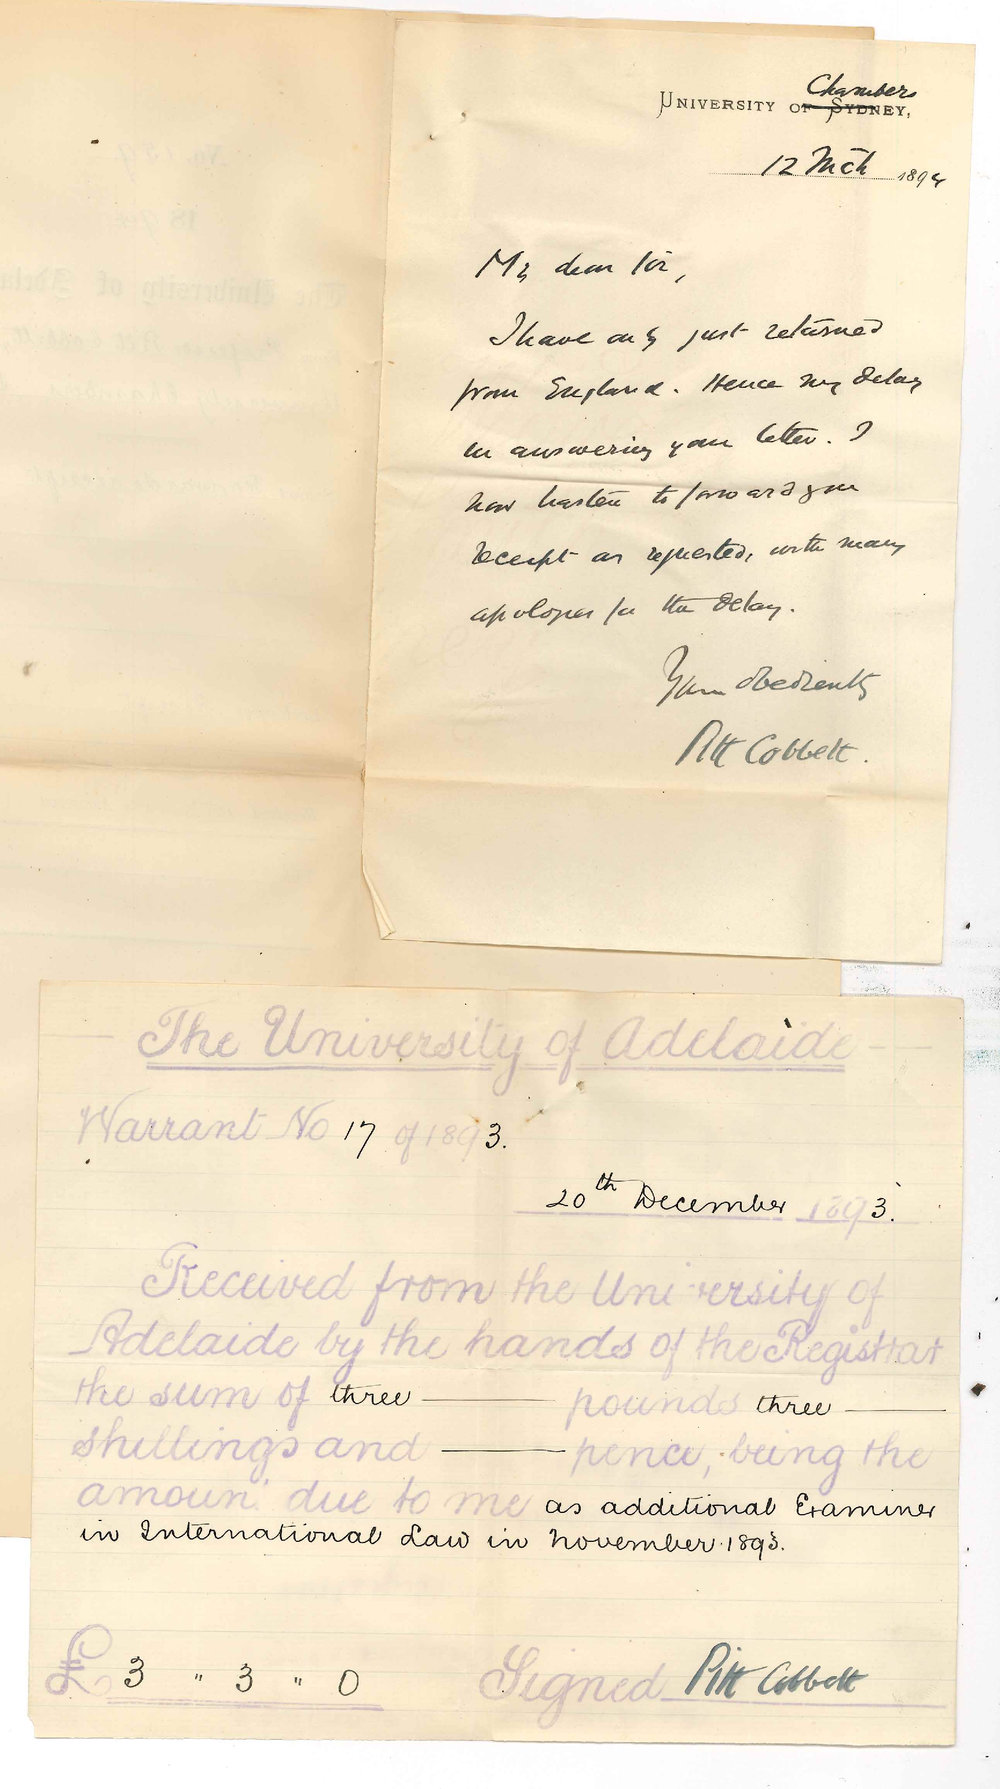 Chambers
UNIVERSITY OF SYDNEY,
12 Mch 1894
My dear Sir,
I have only just returned
from England. Hence my delay
in answering your letter. I
now hasten to forward you
receipt as requested, with many
apologies for the delay.
Yours obediently
Pitt Cobbett.
The University of Adelaide
Warrant No 17 of 1893.
20th December 1893.
Received from the University of
Adelaide by the hands of the Registrar
the sum of three pounds three
shillings and pence, being the
amount due to me as additional Examiner
in International Law in November 1893.
£ 3 " 3 " 0 Signed Pitt Cobbett